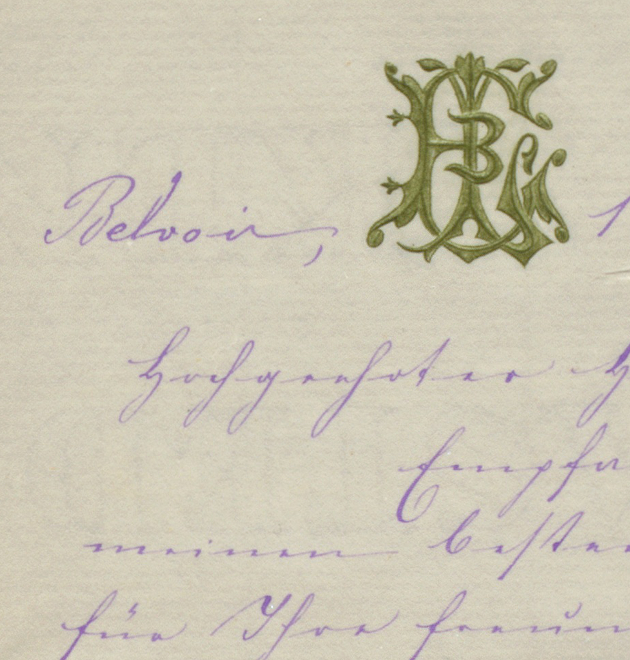 Belvoir,
Hochgeehrter
Empfa
meinen beste
für Ihre freun